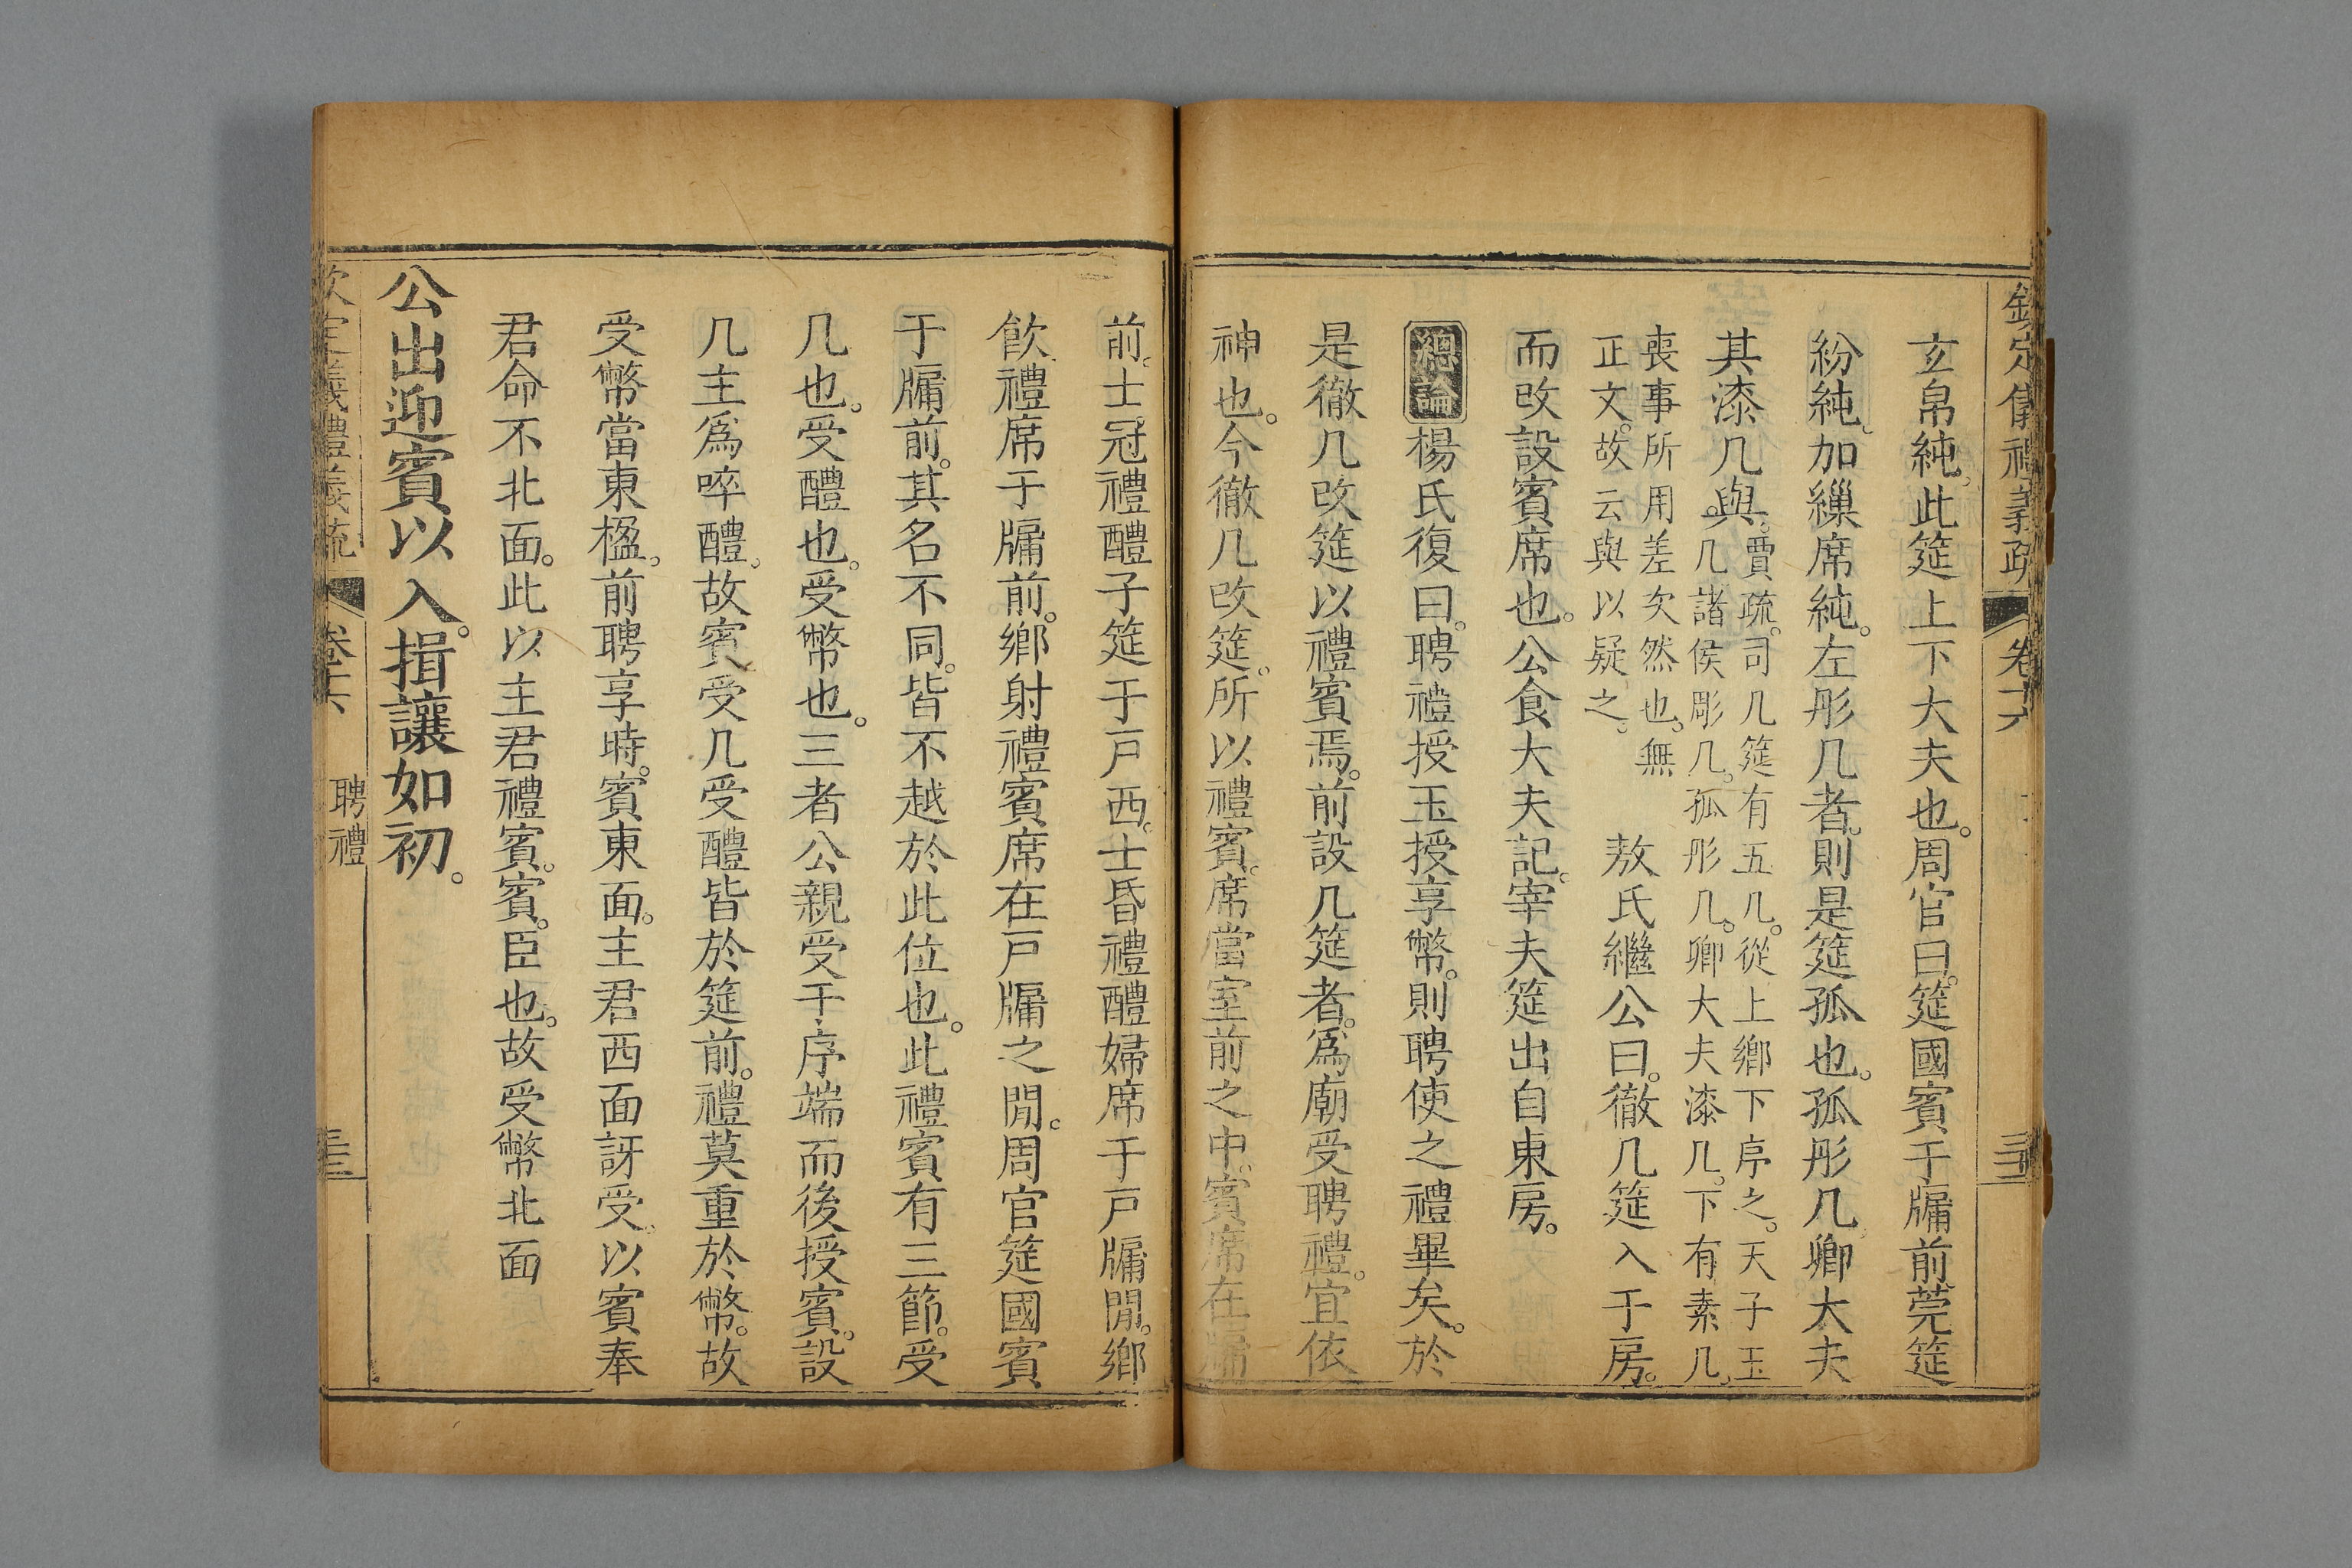 欽定儀禮義疏 卷十六
玄帛純。此筵上下大夫也。周官曰。筵國賓于牖前莞筵
紛純。加繅席純。左彤几者。則是筵孤也。孤彤几。卿大夫
其漆几與。賈疏。司几筵有五几。從上鄉下序之。天子玉
几。諸侯彫几。孤彤几。卿大夫漆几。下有素几。
喪事所用差次然也。無
正文。故云與以疑之。
敖氏繼公曰。徹几筵入于房。
而改設賓席也。公食大夫記。宰夫筵出自東房。
總論 楊氏復曰。聘禮授玉授享幣。則聘使之禮畢矣。於
是徹几改筵以禮賓焉。前設几筵者。爲廟受聘禮。宜依
神也。今徹几改筵。所以禮賓。席當室前之中。賓席在牖
前。士冠禮醴子筵于戸西。士昏禮醴婦席于戸牖閒。鄉
飲禮席于牖前。鄉射禮賓席在戸牖之閒。周官筵國賓
于牖前。其名不同。皆不越於此位也。此禮賓有三節。受
几也。受醴也。受幣也。三者公親受于序端而後授賓。設
几主爲啐醴。故賓受几受醴皆於筵前。禮莫重於幣。故
受幣當東楹。前聘享時。賓東面。主君西面訝受。以賓奉
君命不北面。此以主君禮賓。賓。臣也。故受幣北面
公出迎賓以入。揖讓如初。
欽定義禮義疏 卷十六 聘禮